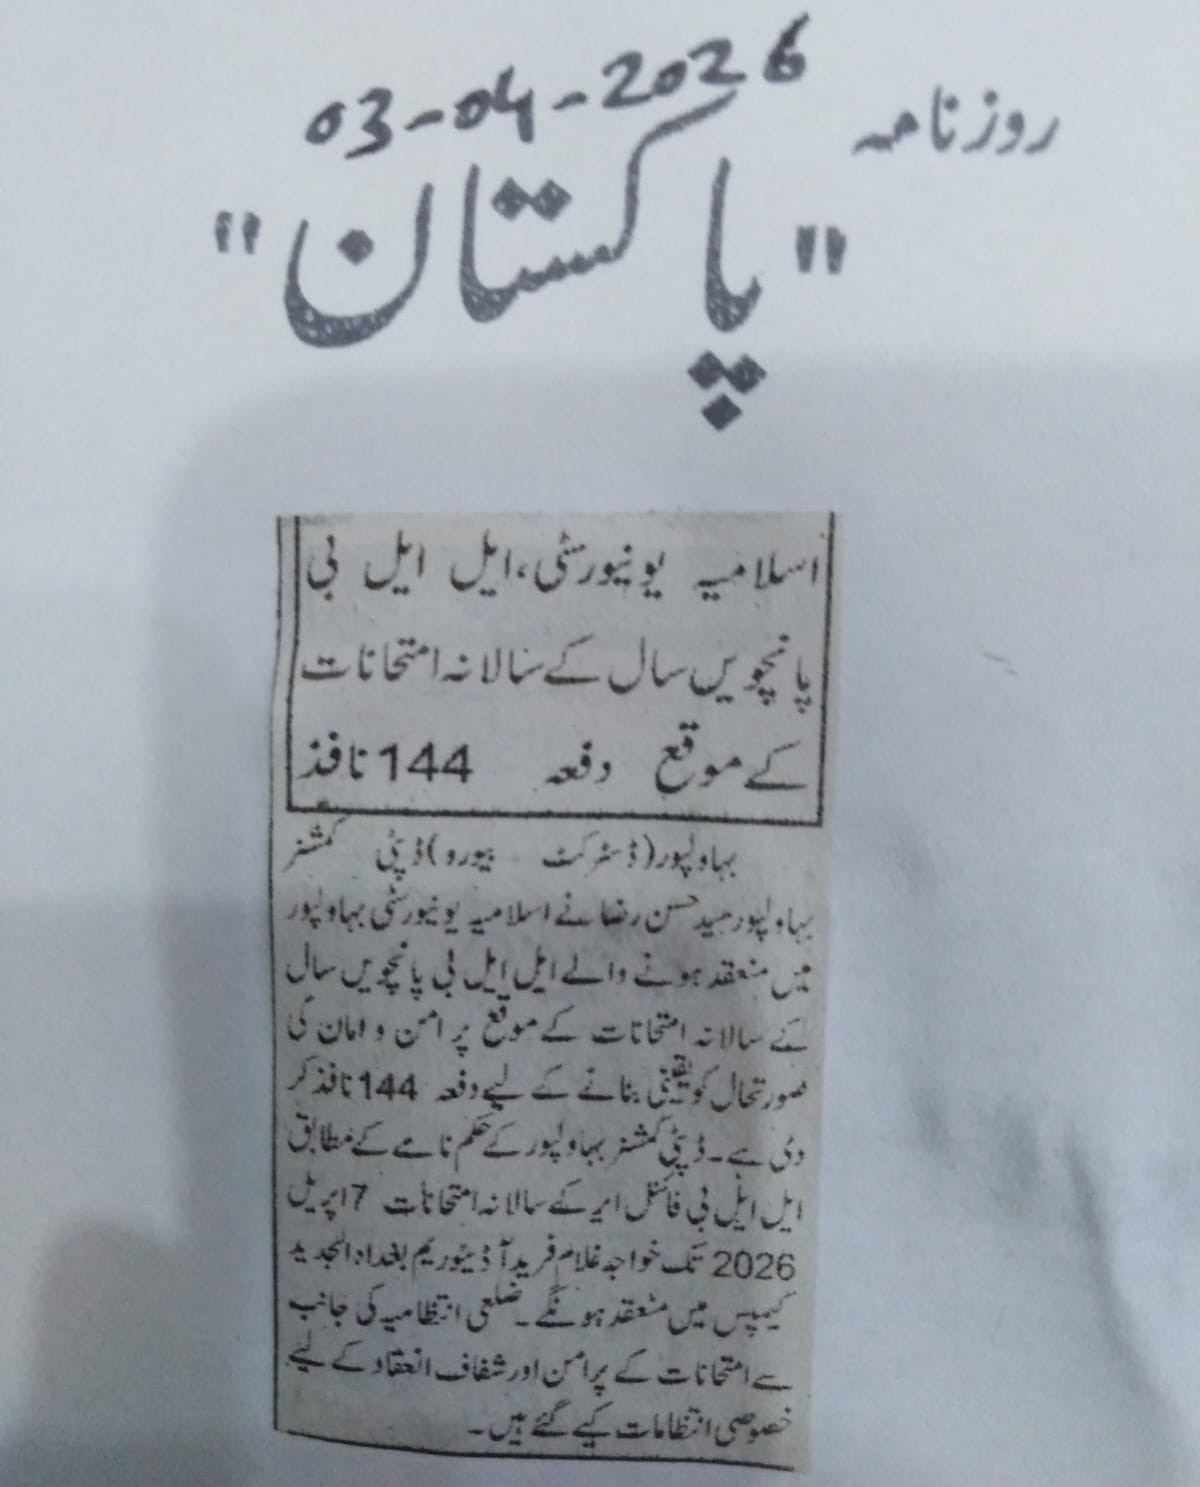 03-04-2026
روزنامہ
"پاکستان"
اسلامیہ یونیورسٹی، ایل ایل بی
پانچویں سال کے سالانہ امتحانات
کے موقع دفعہ 144 نافذ
بہاولپور (ڈسٹرکٹ بیورو) ڈپٹی کمشنر
بہاولپور سید حسن رضا نے اسلامیہ یونیورسٹی بہاولپور
میں منعقد ہونے والے ایل ایل بی پانچویں سال
کے سالانہ امتحانات کے موقع پر امن و امان کی
صورتحال کو یقینی بنانے کے لیے دفعہ 144 نافذ کر
دی ہے۔ ڈپٹی کمشنر بہاولپور کے حکم نامے کے مطابق
ایل ایل بی فائنل ایر کے سالانہ امتحانات 7 اپریل
2026 تک خواجہ غلام فرید آڈیٹوریم بغداد الجدید
کیمپس میں منعقد ہونگے۔ ضلعی انتظامیہ کی جانب
سے امتحانات کے پرامن اور شفاف انعقاد کے لیے
خصوصی انتظامات کیے گئے ہیں۔